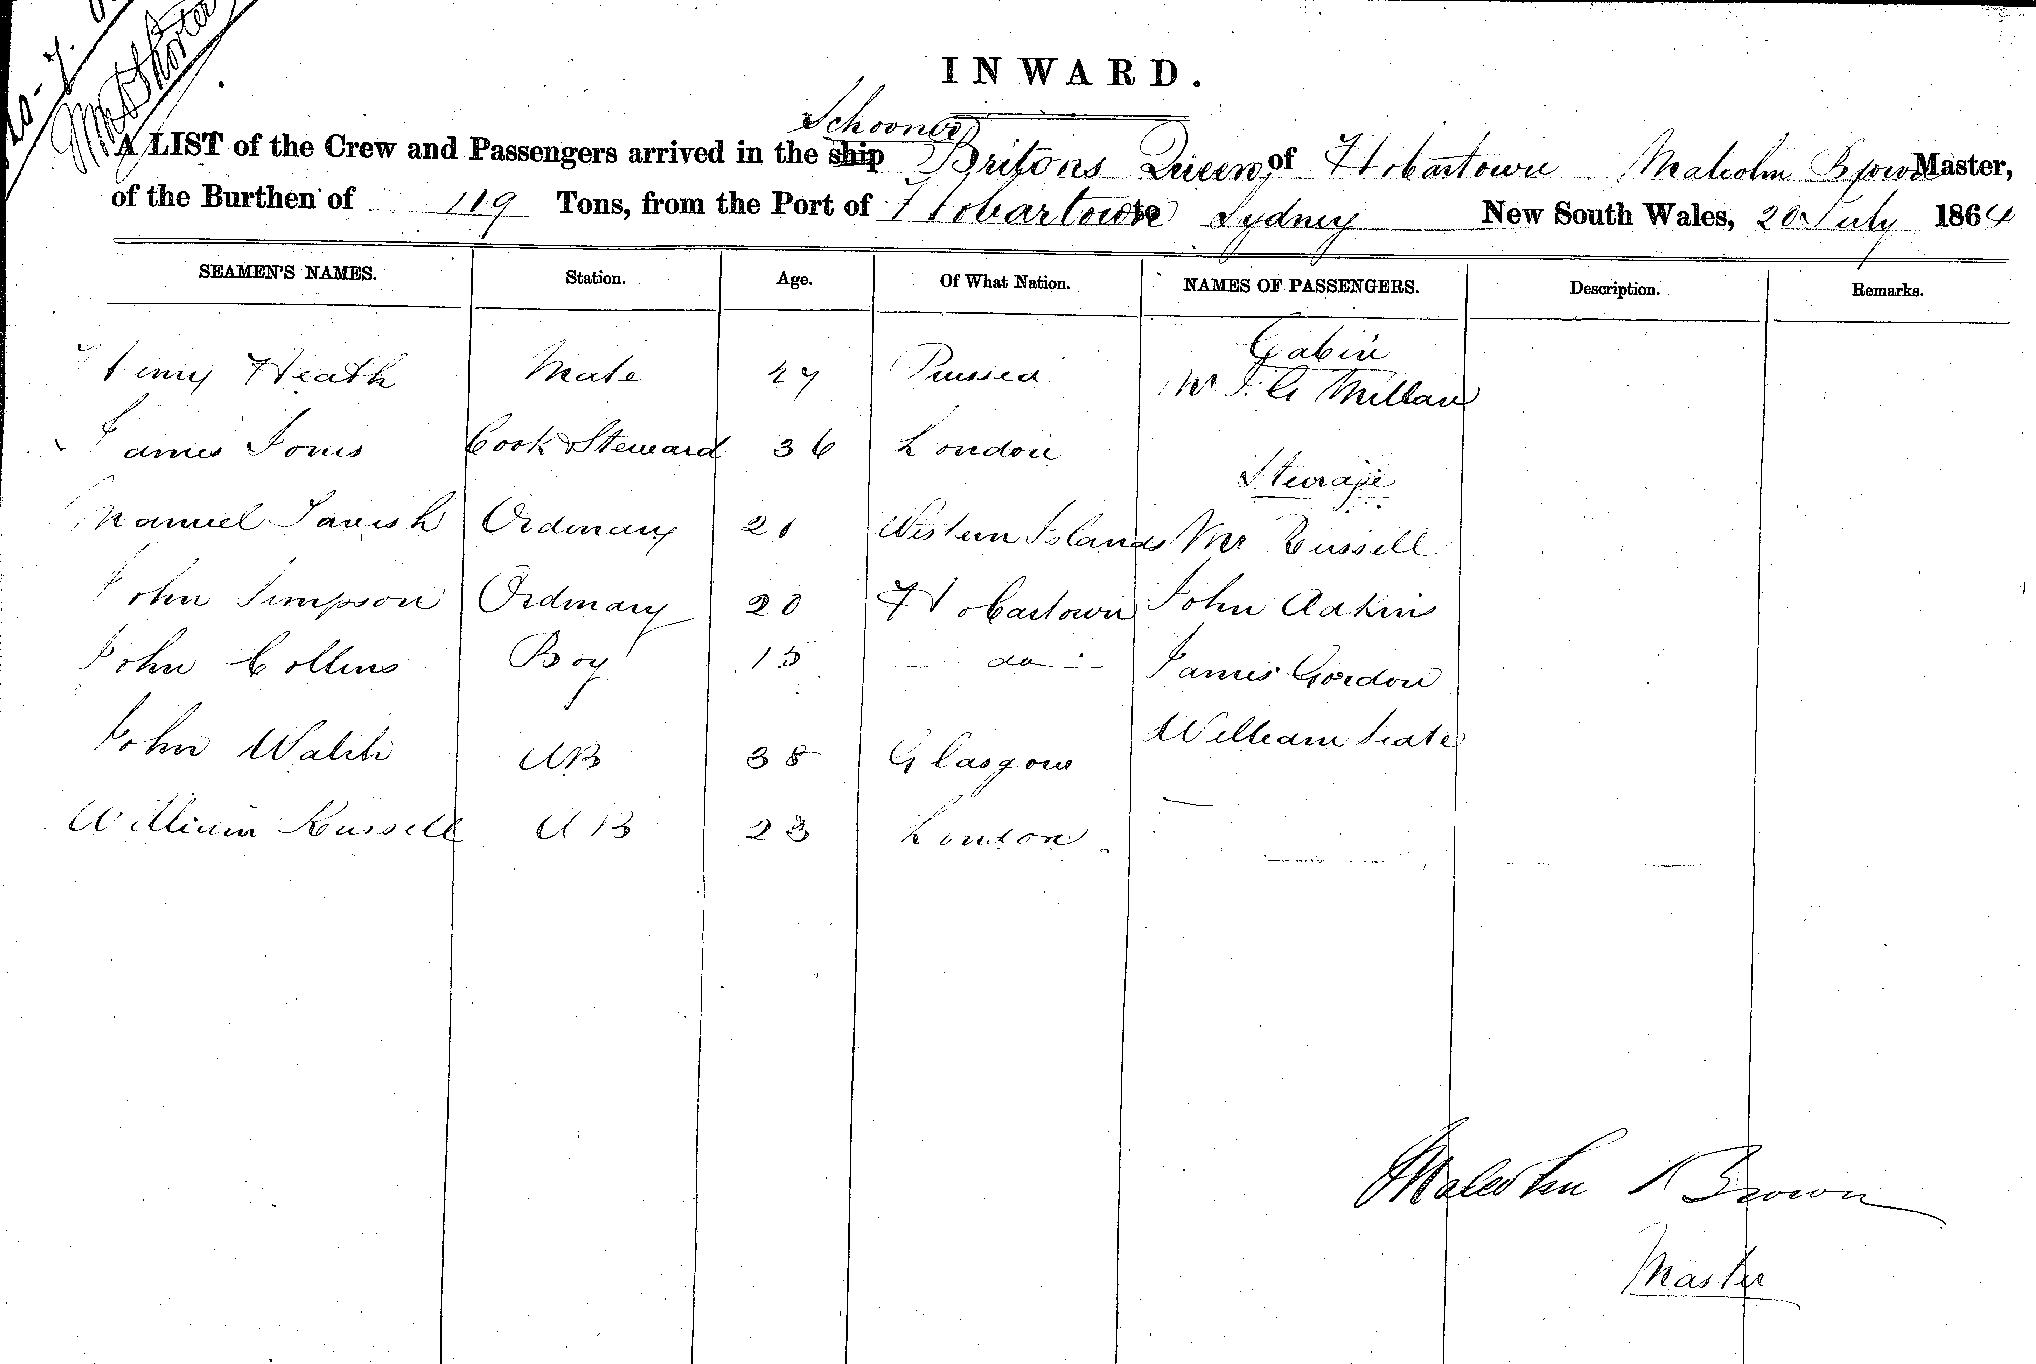 INWARD.
Schooner
A LIST of the Crew and Passengers arrived in the ship Britons Queen of Hobartown Malcolm Brown Master,
of the Burthen of 119 Tons, from the Port of Hobartown Sydney New South Wales, 20 July 1864
SEAMEN'S NAMES. Station. Age. Of What Nation. NAMES OF PASSENGERS. Description. Remarks.
Cabin
Henry Heath Mate 27 Prussia Mr Millar
James Jones Cook & Steward 36 London
Steerage
Manuel Ordinary 21 Western Islands Mr Russell
John Simpson Ordinary 20 Hobartown John Adkins
John Collins Boy 15 do James Gordon
John Walsh AB 38 Glasgow William
William Russell AB 23 London
Malcolm Brown
Master